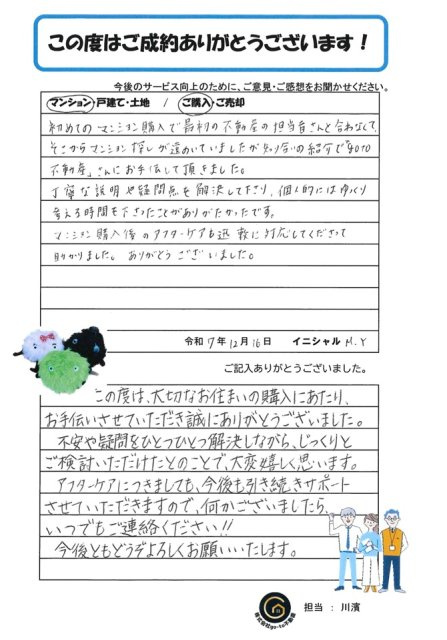 この度はご成約ありがとうございます！
今後のサービス向上のために、ご意見・ご感想をお聞かせください。
マンション・戸建て・土地 / ご購入・ご売却
初めてのマンション購入で最初の不動産の担当者さんと合わなくて、
そこからマンション探しが遠のいていましたが知り合いの紹介で「GOTO
不動産」さんにお手伝して頂きました。
丁寧な説明や疑問点を解決して下さり、個人的にはゆっくり
考える時間を下さったことがありがたかったです。
マンション購入後のアフターケアも迅速に対応してくださって
助かりました。ありがとうございました。
令和7年12月16日 イニシャル M.Y
ご記入ありがとうございました。
この度は、大切なお住まいの購入にあたり、
お手伝いさせていただき誠にありがとうございました。
不安や疑問をひとつひとつ解決しながら、じっくりと
ご検討いただけたとのことで、大変嬉しく思います。
アフターケアにつきましても、今後も引き続きサポート
させていただきますので、何かございましたら、
いつでもご連絡ください!!
今後ともどうぞよろしくお願いいたします。
株式会社go-to不動産
担当 : 川濱